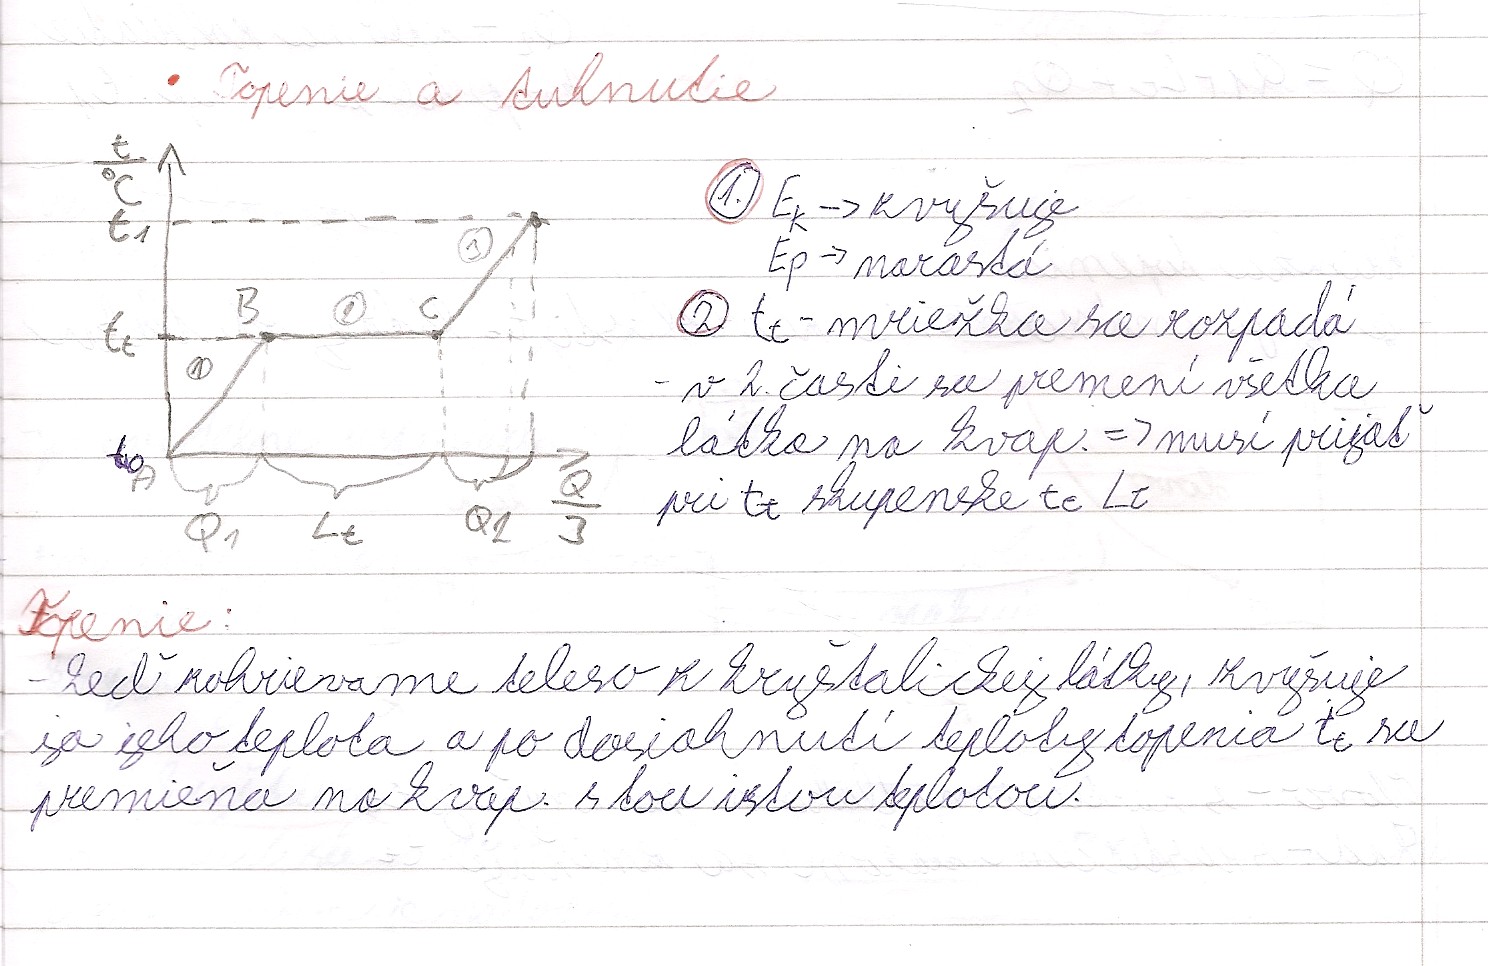 • Topenie a tuhnutie
t
°C
t1
tt
t0
A
B
C
①
②
③
Q1
Lt
Q2
Q
J
1. Ek -> zvyšuje
Ep -> narastá
2 tt - mriežka sa rozpadá
- v 2. časti sa premení všetka
látka na kvap. => musí prijať
pri tt skupenské tt Lt
Topenie:
- keď zohrievame teleso z kryštalickej látky, zvyšuje
sa jeho teplota a po dosiahnutí teploty topenia tt sa
premieňa na kvap. s tou istou teplotou.